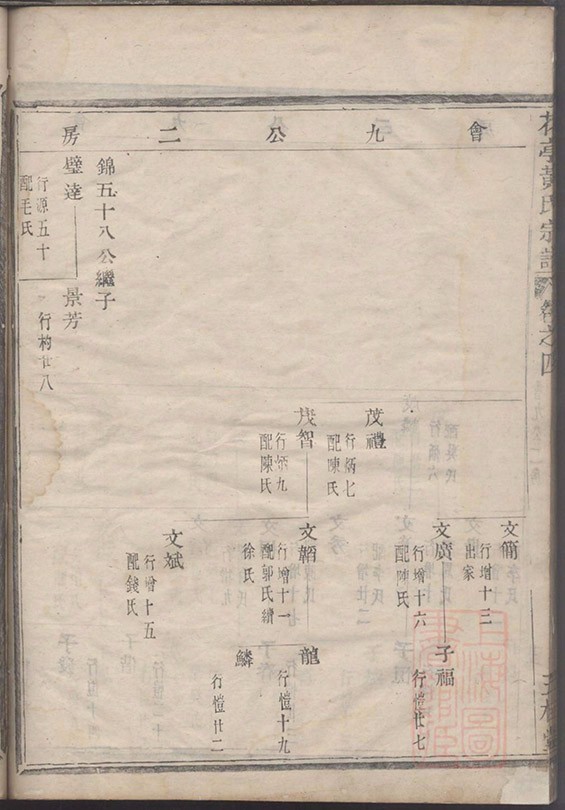 會九公二房
茂禮
行炳七
配陳氏
茂智
行炳九
配陳氏
錦五十八公繼子
璧達
行源五十
配毛氏
景芳
行構廿八
文簡
行增十三
出家
文廣
行增十六
配陳氏
子福
行愷廿七
文韜
行增十一
配郭氏續
徐氏
龍
行愷十九
鱗
行愷廿二
文斌
行增十五
配錢氏
黃氏宗譜
卷之四